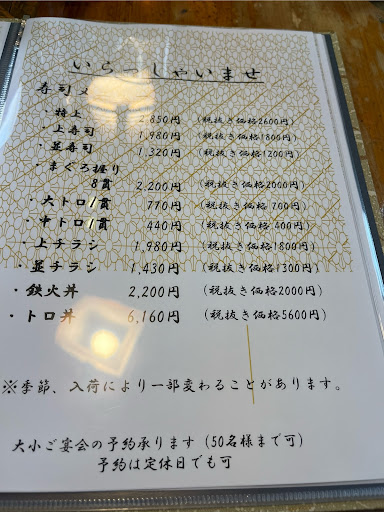 いらっしゃいませ
寿司
・特上 2,850円 (税抜き価格2600円)
・上寿司 1,980円 (税抜き価格1800円)
・並寿司 1,320円 (税抜き価格1200円)
・まぐろ握り
8貫 2,200円 (税抜き価格2000円)
・大トロ1貫 770円 (税抜き価格 700円)
・中トロ1貫 440円 (税抜き価格 400円)
・上チラシ 1,980円 (税抜き価格1800円)
・並チラシ 1,430円 (税抜き価格1300円)
・鉄火丼 2,200円 (税抜き価格2000円)
・トロ丼 6,160円 (税抜き価格5600円)
※季節、入荷により一部変わることがあります。
大小ご宴会の予約承ります (50名様まで可)
予約は定休日でも可